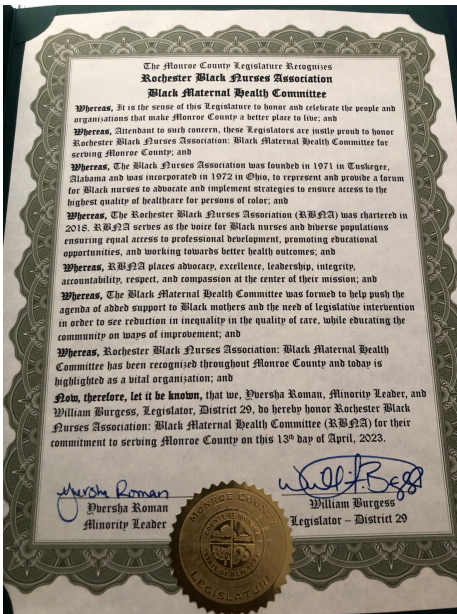 The Monroe County Legislature Recognizes
Rochester Black Nurses Association
Black Maternal Health Committee
Whereas, It is the sense of this Legislature to honor and celebrate the people and
organizations that make Monroe County a better place to live; and
Whereas, Attendant to such concern, these Legislators are justly proud to honor
Rochester Black Nurses Association: Black Maternal Health Committee for
serving Monroe County; and
Whereas, The Black Nurses Association was founded in 1971 in Tuskegee,
Alabama and was incorporated in 1972 in Ohio, to represent and provide a forum
for Black nurses to advocate and implement strategies to ensure access to the
highest quality of healthcare for persons of color; and
Whereas, The Rochester Black Nurses Association (RBNA) was chartered in
2018. RBNA serves as the voice for Black nurses and diverse populations
ensuring equal access to professional development, promoting educational
opportunities, and working towards better health outcomes; and
Whereas, RBNA places advocacy, excellence, leadership, integrity,
accountability, respect, and compassion at the center of their mission; and
Whereas, The Black Maternal Health Committee was formed to help push the
agenda of added support to Black mothers and the need of legislative intervention
in order to see reduction in inequality in the quality of care, while educating the
community on ways of improvement; and
Whereas, Rochester Black Nurses Association: Black Maternal Health
Committee has been recognized throughout Monroe County and today is
highlighted as a vital organization; and
Now, therefore, let it be known, that we, Yversha Roman, Minority Leader, and
William Burgess, Legislator, District 29, do hereby honor Rochester Black
Nurses Association: Black Maternal Health Committee (RBNA) for their
commitment to serving Monroe County on this 13th day of April, 2023.
Yversha Roman
Yversha Roman
Minority Leader
William Burgess
Legislator – District 29
MONROE COUNTY
COUNTY OF MONROE
STATE OF NEW YORK
LEGISLATURE